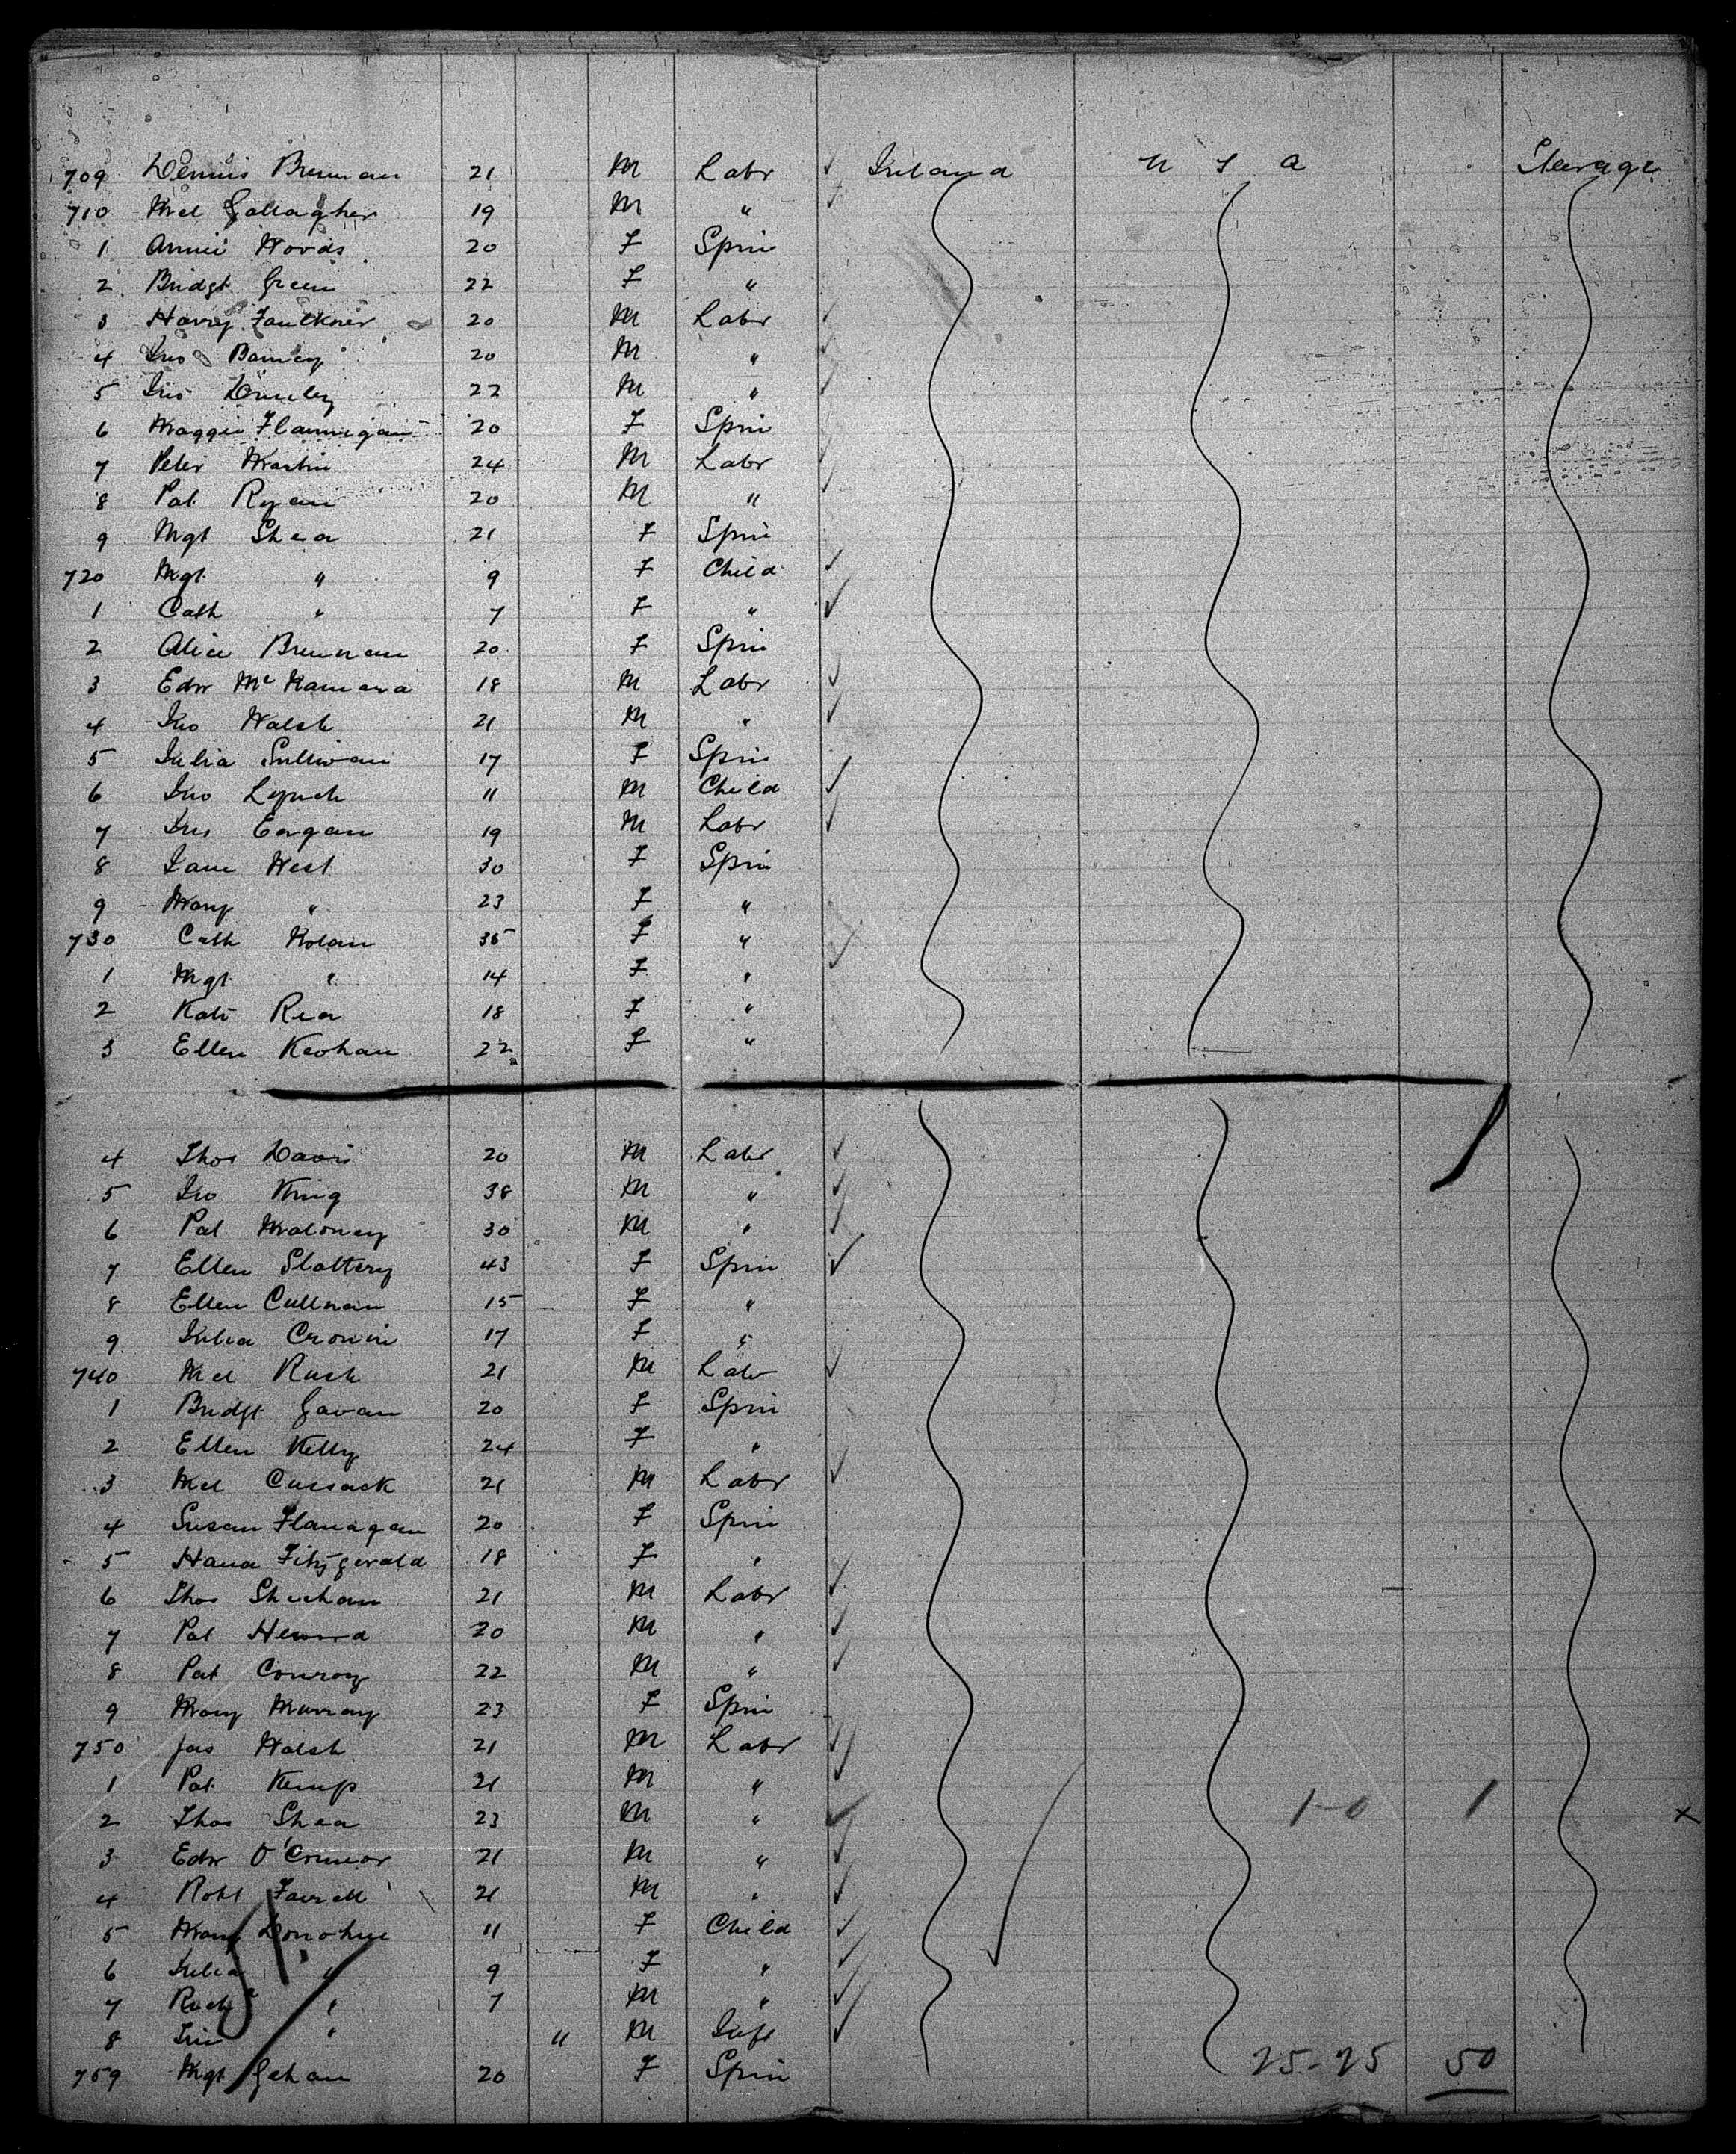 709 Dennis Brennan 21 M Labr ✓ Ireland U S A Steerage
710 Mcl Gallagher 19 M " ✓
1 Annie Woods 20 F Spin
2 Bridgt Green 22 F "
3 Harry Faulkner 20 M Labr
4 Jno 20 M "
5 Jno 22 M "
6 Maggie Flannigan 20 F Spin
7 Peter Martin 24 M Labr
8 Pat Ryan 20 M "
9 Mgt Shea 21 F Spin
720 Mgt " 9 F Child ✓
1 Cath " 7 F " ✓
2 Alice Brennan 20 F Spin
3 Edw McNamara 18 M Labr ✓
4 Jno Walsh 21 M " ✓
5 Julia Sullivan 17 F Spin
6 Jno Lynch 11 M Child ✓
7 Jno Eagan 19 M Labr ✓
8 Jane West 30 F Spin
9 Mary " 23 F "
730 Cath Nolan 35 F " ✓
1 Mgt " 14 F "
2 Kate Rea 18 F "
3 Ellen Keohan 22 F "
4 Thos Davis 20 M Labr ✓
5 Jno King 38 M " ✓
6 Pat Maloney 30 M " ✓
7 Ellen Slattery 43 F Spin ✓
8 Ellen Cullinan 15 F "
9 Julia Cronin 17 F "
740 Mcl Rush 21 M Labr ✓
1 Bridgt Gavan 20 F Spin
2 Ellen Kelly 24 F "
3 Mcl Cussack 21 M Labr ✓
4 Susan Flanagan 20 F Spin
5 Hana Fitzgerald 18 F "
6 Thos Sheehan 21 M Labr ✓
7 Pat 20 M " ✓
8 Pat Conroy 22 M " ✓
9 Mary Murray 23 F Spin
750 Jas Walsh 21 M Labr ✓
1 Pat Kemp 21 M " ✓
2 Thos Shea 23 M " ✓ 1-0 1 X
3 Edw O'Connor 21 M " ✓
4 Robt Farrell 21 M " ✓
5 Mary Donohue 11 F Child ✓
6 Julia " 9 F " ✓
7 " 7 M " ✓
8 Jno " " M Inft ✓
759 Mgt Gehan 20 F Spin 25-25 50